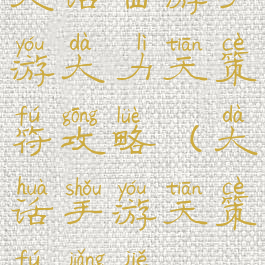 yóu dà lì tiān cè
游大力天策
fú gōng lüè dà
符攻略（大
huà shǒu yóu tiān cè
话手游天策
fú jiǎng jiě